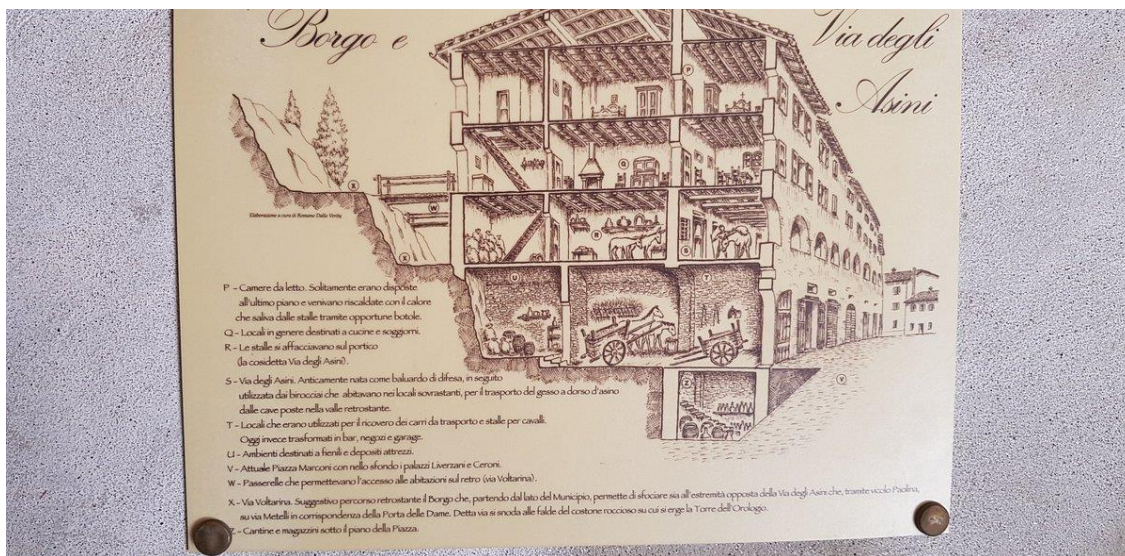 Borgo e
Via degli
Asini
Elaborazione a cura di Romano Dalle Verità
P - Camere da letto. Solitamente erano disposte
all'ultimo piano e venivano riscaldate con il calore
che saliva dalle stalle tramite opportune botole.
Q - Locali in genere destinati a cucine e soggiorni.
R - Le stalle si affacciavano sul portico
(la cosidetta Via degli Asini).
S - Via degli Asini. Anticamente nata come baluardo di difesa, in seguito
utilizzata dai birocciai che abitavano nei locali sovrastanti, per il trasporto del gesso a dorso d'asino
dalle cave poste nella valle retrostante.
T - Locali che erano utilizzati per il ricovero dei carri da trasporto e stalle per cavalli.
Oggi invece trasformati in bar, negozi e garage.
U - Ambienti destinati a fienili e depositi attrezzi.
V - Attuale Piazza Marconi con nello sfondo i palazzi Liverzani e Ceroni.
W - Passerelle che permettevano l'accesso alle abitazioni sul retro (via Voltarina).
X - Via Voltarina. Suggestivo percorso retrostante il Borgo che, partendo dal lato del Municipio, permette di sfociare sia all'estremità opposta della Via degli Asini che, tramite vicolo Paolina,
su via Metelli in corrispondenza della Porta delle Dame. Detta via si snoda alle falde del costone roccioso su cui si erge la Torre dell'Orologio.
Z - Cantine e magazzini sotto il piano della Piazza.
P
Q
X
W
R
S
X
U
T
Z
V